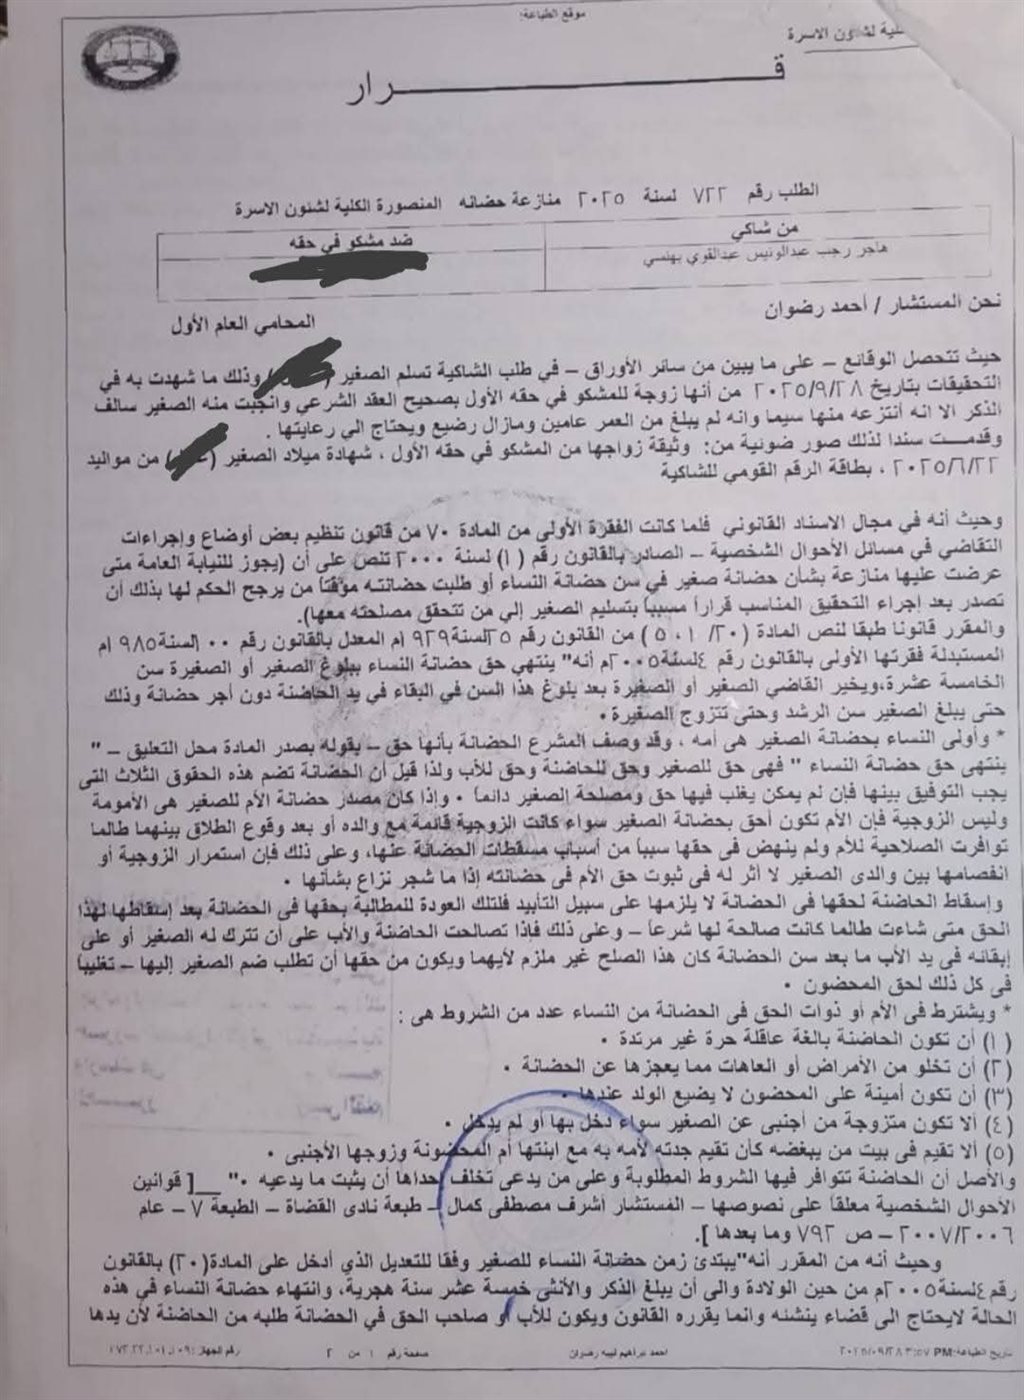 موقع الطباعة:
لية لشئون الاسرة
قـــــــــــرار
الطلب رقم ٧٢٢ لسنة ٢٠٢٥ منازعة حضانه المنصورة الكلية لشئون الاسرة
من شاكي
ضد مشكو في حقه
هاجر رجب عبدالونيس عبدالقوي بهنسي
نحن المستشار / أحمد رضوان
المحامي العام الأول
حيث تتحصل الوقائع – على ما يبين من سائر الأوراق – في طلب الشاكية تسلم الصغير ( ) وذلك ما شهدت به في
التحقيقات بتاريخ ٢٠٢٥/٩/٢٨ من أنها زوجة للمشكو في حقه الأول بصحيح العقد الشرعي وانجبت منه الصغير سالف
الذكر الا انه أنتزعه منها سيما وانه لم يبلغ من العمر عامين ومازال رضيع ويحتاج الي رعايتها .
وقدمـــت سندا لذلك صور ضوئية من: وثيقة زواجها من المشكو في حقه الأول ، شهادة ميلاد الصغير ( ) من مواليد
٢٠٢٥/٦/٢٢ ، بطاقة الرقم القومي للشاكية
وحيث أنه في مجال الاسناد القانوني فلما كانت الفقرة الأولى من المادة ٧٠ من قانون تنظيم بعض أوضاع وإجراءات
التقاضي في مسائل الأحوال الشخصية – الصادر بالقانون رقم (١) لسنة ٢٠٠٠ تنص على أن (يجوز للنيابة العامة متى
عرضت عليها منازعة بشأن حضانة صغير في سن حضانة النساء أو طلبت حضانته مؤقتاً من يرجح الحكم لها بذلك أن
تصدر بعد إجراء التحقيق المناسب قراراً مسبباً بتسليم الصغير إلي من تتحقق مصلحته معها).
والمقرر قانونا طبقا لنص المادة (٢٠/ ١، ٥) من القانون رقم ٢٥لسنة١٩٢٩م المعدل بالقانون رقم ١٠٠لسنة١٩٨٥م
المستبدلة فقرتها الأولى بالقانون رقم ٤لسنة٢٠٠٥م أنه" ينتهي حق حضانة النساء ببلوغ الصغير أو الصغيرة سن
الخامسة عشرة،ويخير القاضي الصغير أو الصغيرة بعد بلوغ هذا السن في البقاء في يد الحاضنة دون أجر حضانة وذلك
حتى يبلغ الصغير سن الرشد وحتى تتزوج الصغيرة .
* وأولى النساء بحضانة الصغير هى أمه ، وقد وصف المشرع الحضانة بأنها حق – بقوله بصدر المادة محل التعليق – "
ينتهى حق حضانة النساء " فهى حق للصغير وحق للحاضنة وحق للأب ولذا قيل أن الحضانة تضم هذه الحقوق الثلاث التى
يجب التوفيق بينها فإن لم يمكن يغلب فيها حق ومصلحة الصغير دائماً . وإذا كان مصدر حضانة الأم للصغير هى الأمومة
وليس الزوجية فإن الأم تكون أحق بحضانة الصغير سواء كانت الزوجية قائمة مع والده أو بعد وقوع الطلاق بينهما طالما
توافرت الصلاحية للأم ولم ينهض فى حقها سبباً من أسباب مسقطات الحضانة عنها، وعلى ذلك فإن استمرار الزوجية أو
انفصامها بين والدى الصغير لا أثر له فى ثبوت حق الأم فى حضانته إذا ما شجر نزاع بشأنها .
وإسقاط الحاضنة لحقها فى الحضانة لا يلزمها على سبيل التأبيد فلتلك العودة للمطالبة بحقها فى الحضانة بعد إسقاطها لهذا
الحق متى شاءت طالما كانت صالحة لها شرعاً – وعلى ذلك فإذا تصالحت الحاضنة والأب على أن تترك له الصغير أو على
إبقائه فى يد الأب ما بعد سن الحضانة كان هذا الصلح غير ملزم لأيهما ويكون من حقها أن تطلب ضم الصغير إليها – تغليباً
فى كل ذلك لحق المحضون .
* ويشترط فى الأم أو ذوات الحق فى الحضانة من النساء عدد من الشروط هى :
(١) أن تكون الحاضنة بالغة عاقلة حرة غير مرتدة .
(٢) أن تخلو من الأمراض أو العاهات مما يعجزها عن الحضانة .
(٣) أن تكون أمينة على المحضون لا يضيع الولد عندها .
(٤) ألا تكون متزوجة من أجنبى عن الصغير سواء دخل بها أو لم يدخل .
(٥) ألا تقيم فى بيت من يبغضه كأن تقيم جدته لأمه به مع ابنتها أم المحضونة وزوجها الأجنبى .
والأصل أن الحاضنة تتوافر فيها الشروط المطلوبة وعلى من يدعى تخلف إحداها أن يثبت ما يدعيه ." __[ قوانين
الأحوال الشخصية معلقاً على نصوصها – المستشار أشرف مصطفى كمال – طبعة نادى القضاة – الطبعة ٧ – عام
٢٠٠٧/٢٠٠٦ – ص ٧٩٢ وما بعدها ].
وحيث أنه من المقرر أنه"يبتدئ زمن حضانة النساء للصغير وفقا للتعديل الذي أدخل على المادة(٢٠) بالقانون
رقم٤لسنة٢٠٠٥م من حين الولادة والى أن يبلغ الذكر والأنثى خمسة عشر سنة هجرية، وانتهاء حضانة النساء في هذه
الحالة لايحتاج الى قضاء ينشئه وانما يقرره القانون ويكون للأب أو صاحب الحق في الحضانة طلبه من الحاضنة لأن يدها
تاريخ الطباعة:٢٠٢٥/٠٩/٢٨ ٣:٥٧ PM
احمد ابراهيم لبيه رضوان
صفحة رقم ١ من ٢
رقم الجهاز :